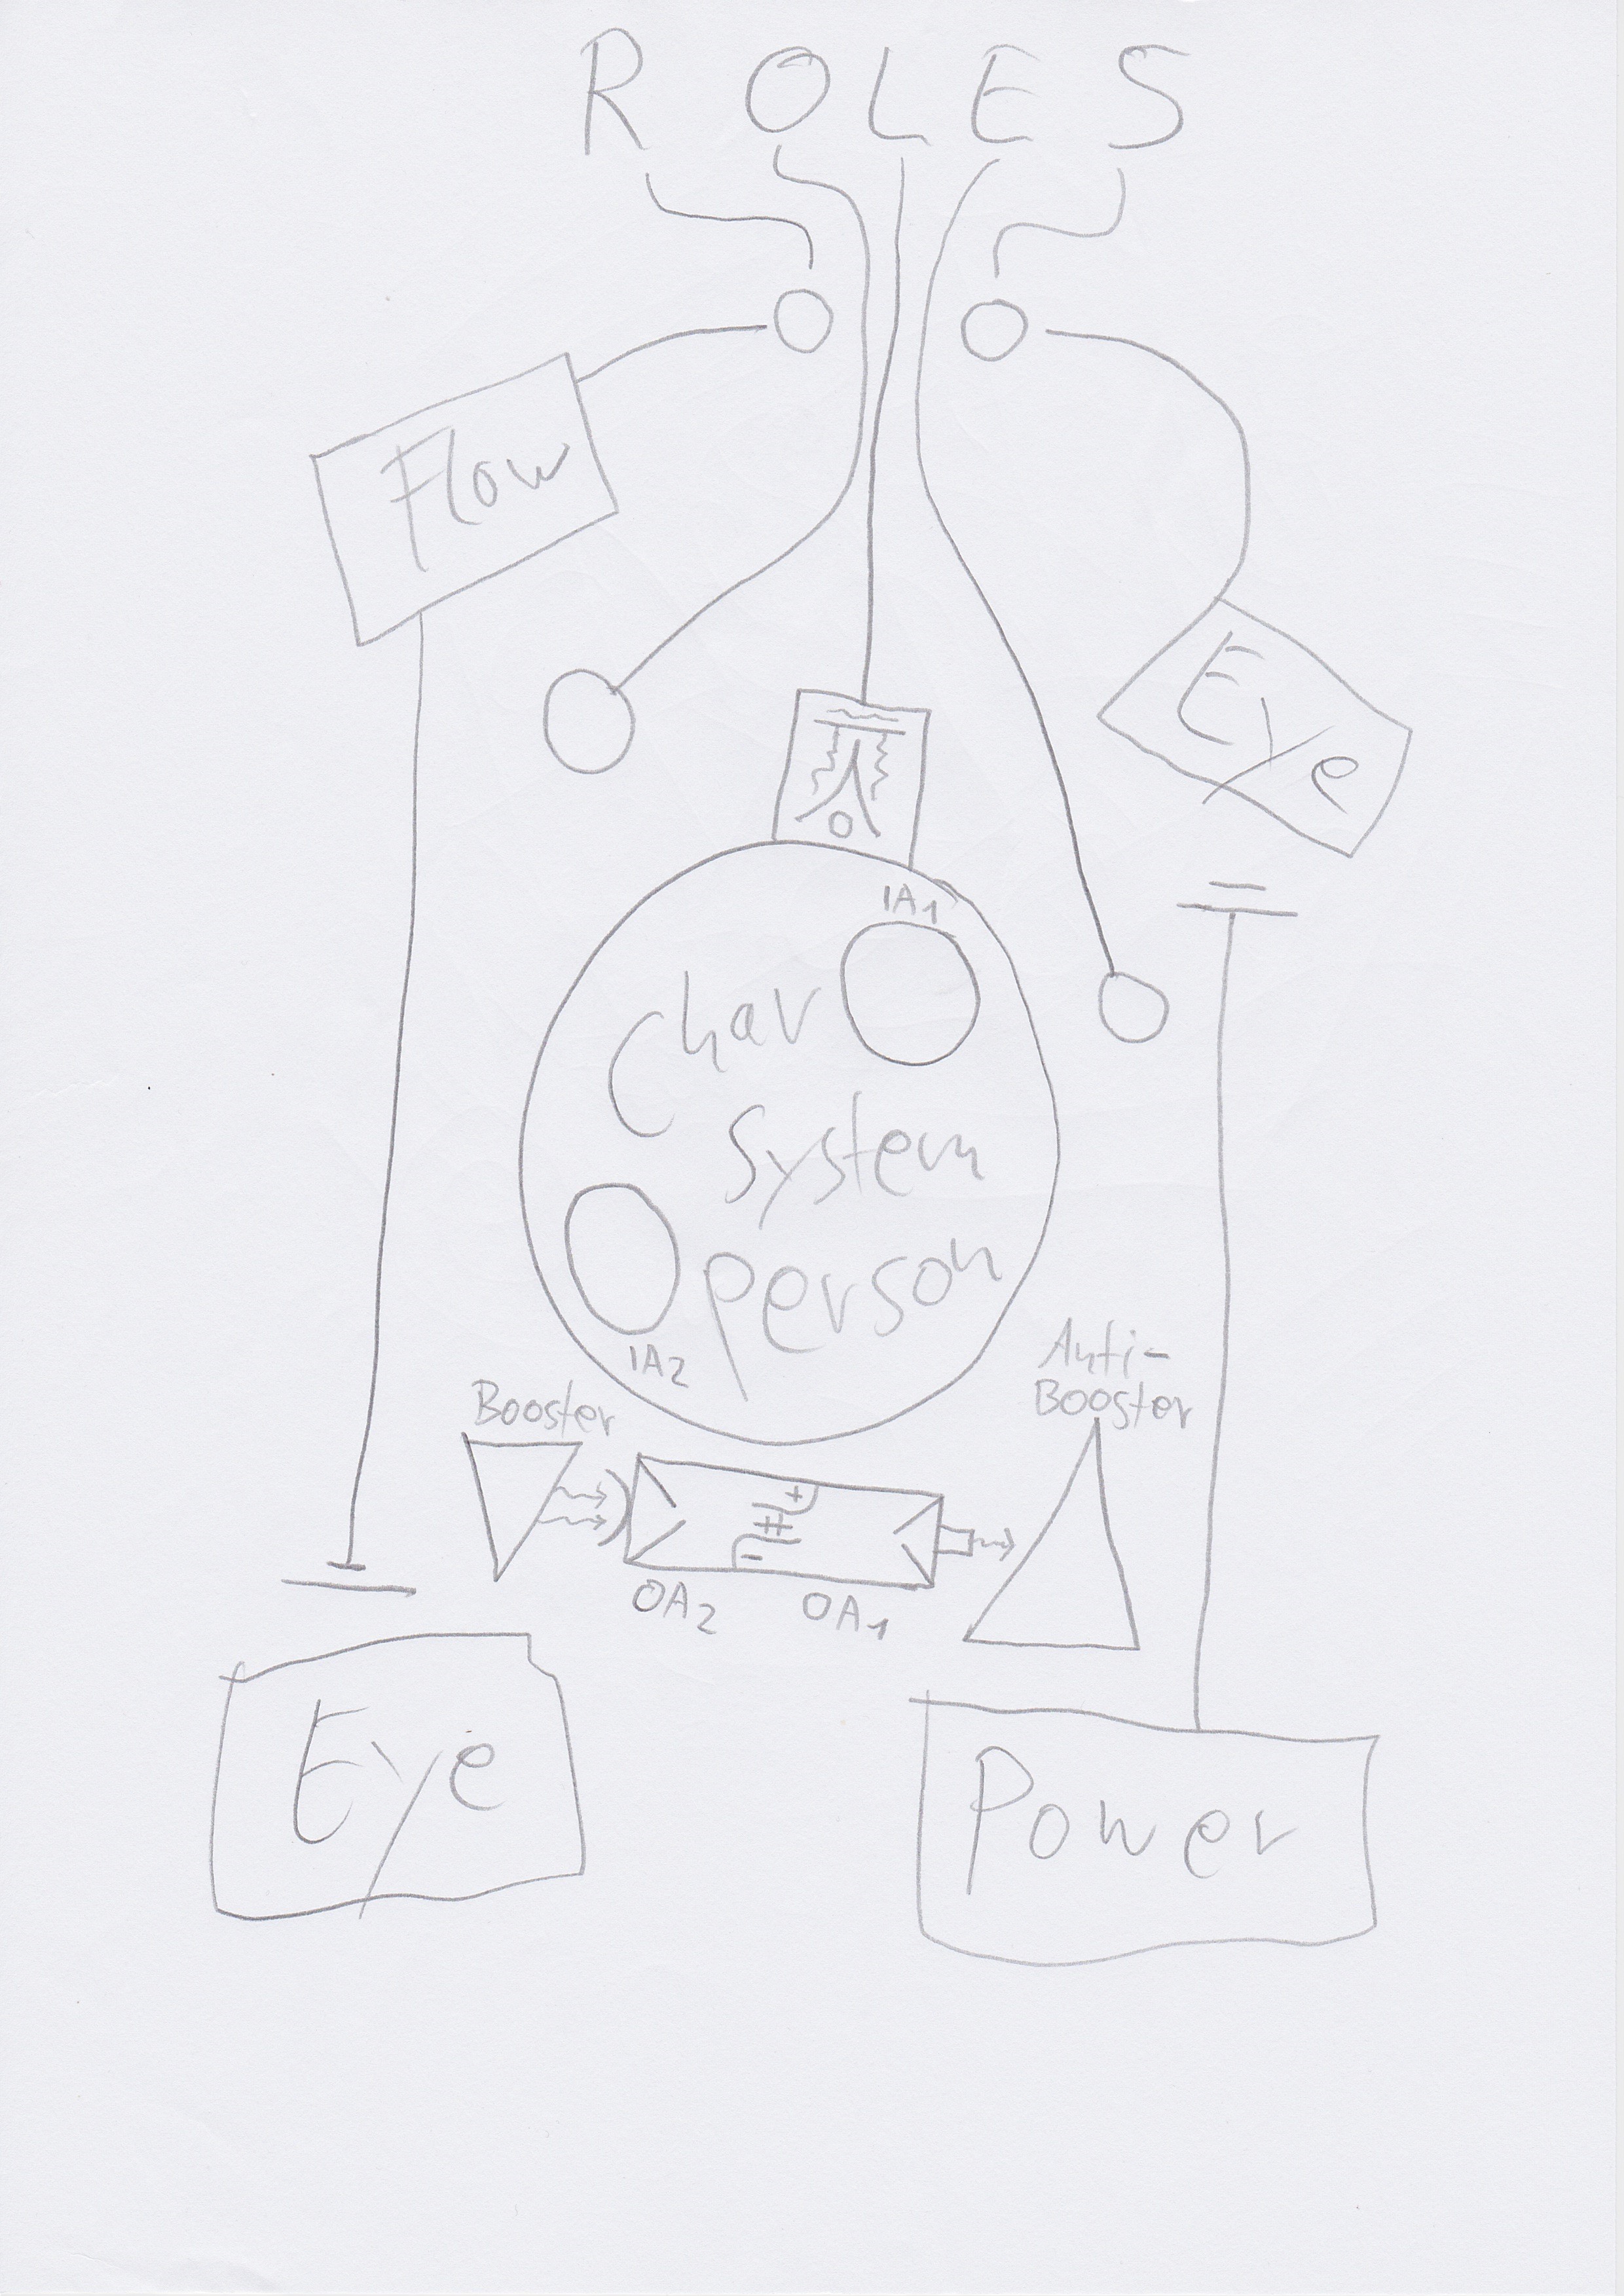 R O L E S
Flow
Eye
IA1
Char
System
person
IA2
Anti-
Booster
Booster
+
-
OA2
OA1
Eye
Power